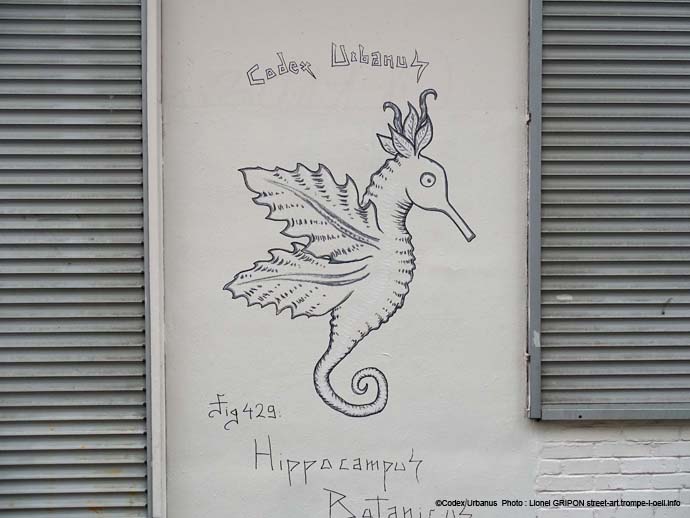 Codex Urbanus
Fig 429.
Hippocampus
Botanicus
©Codex/Urbanus Photo : Lionel GRIPON street-art.trompe-l-oeil.info